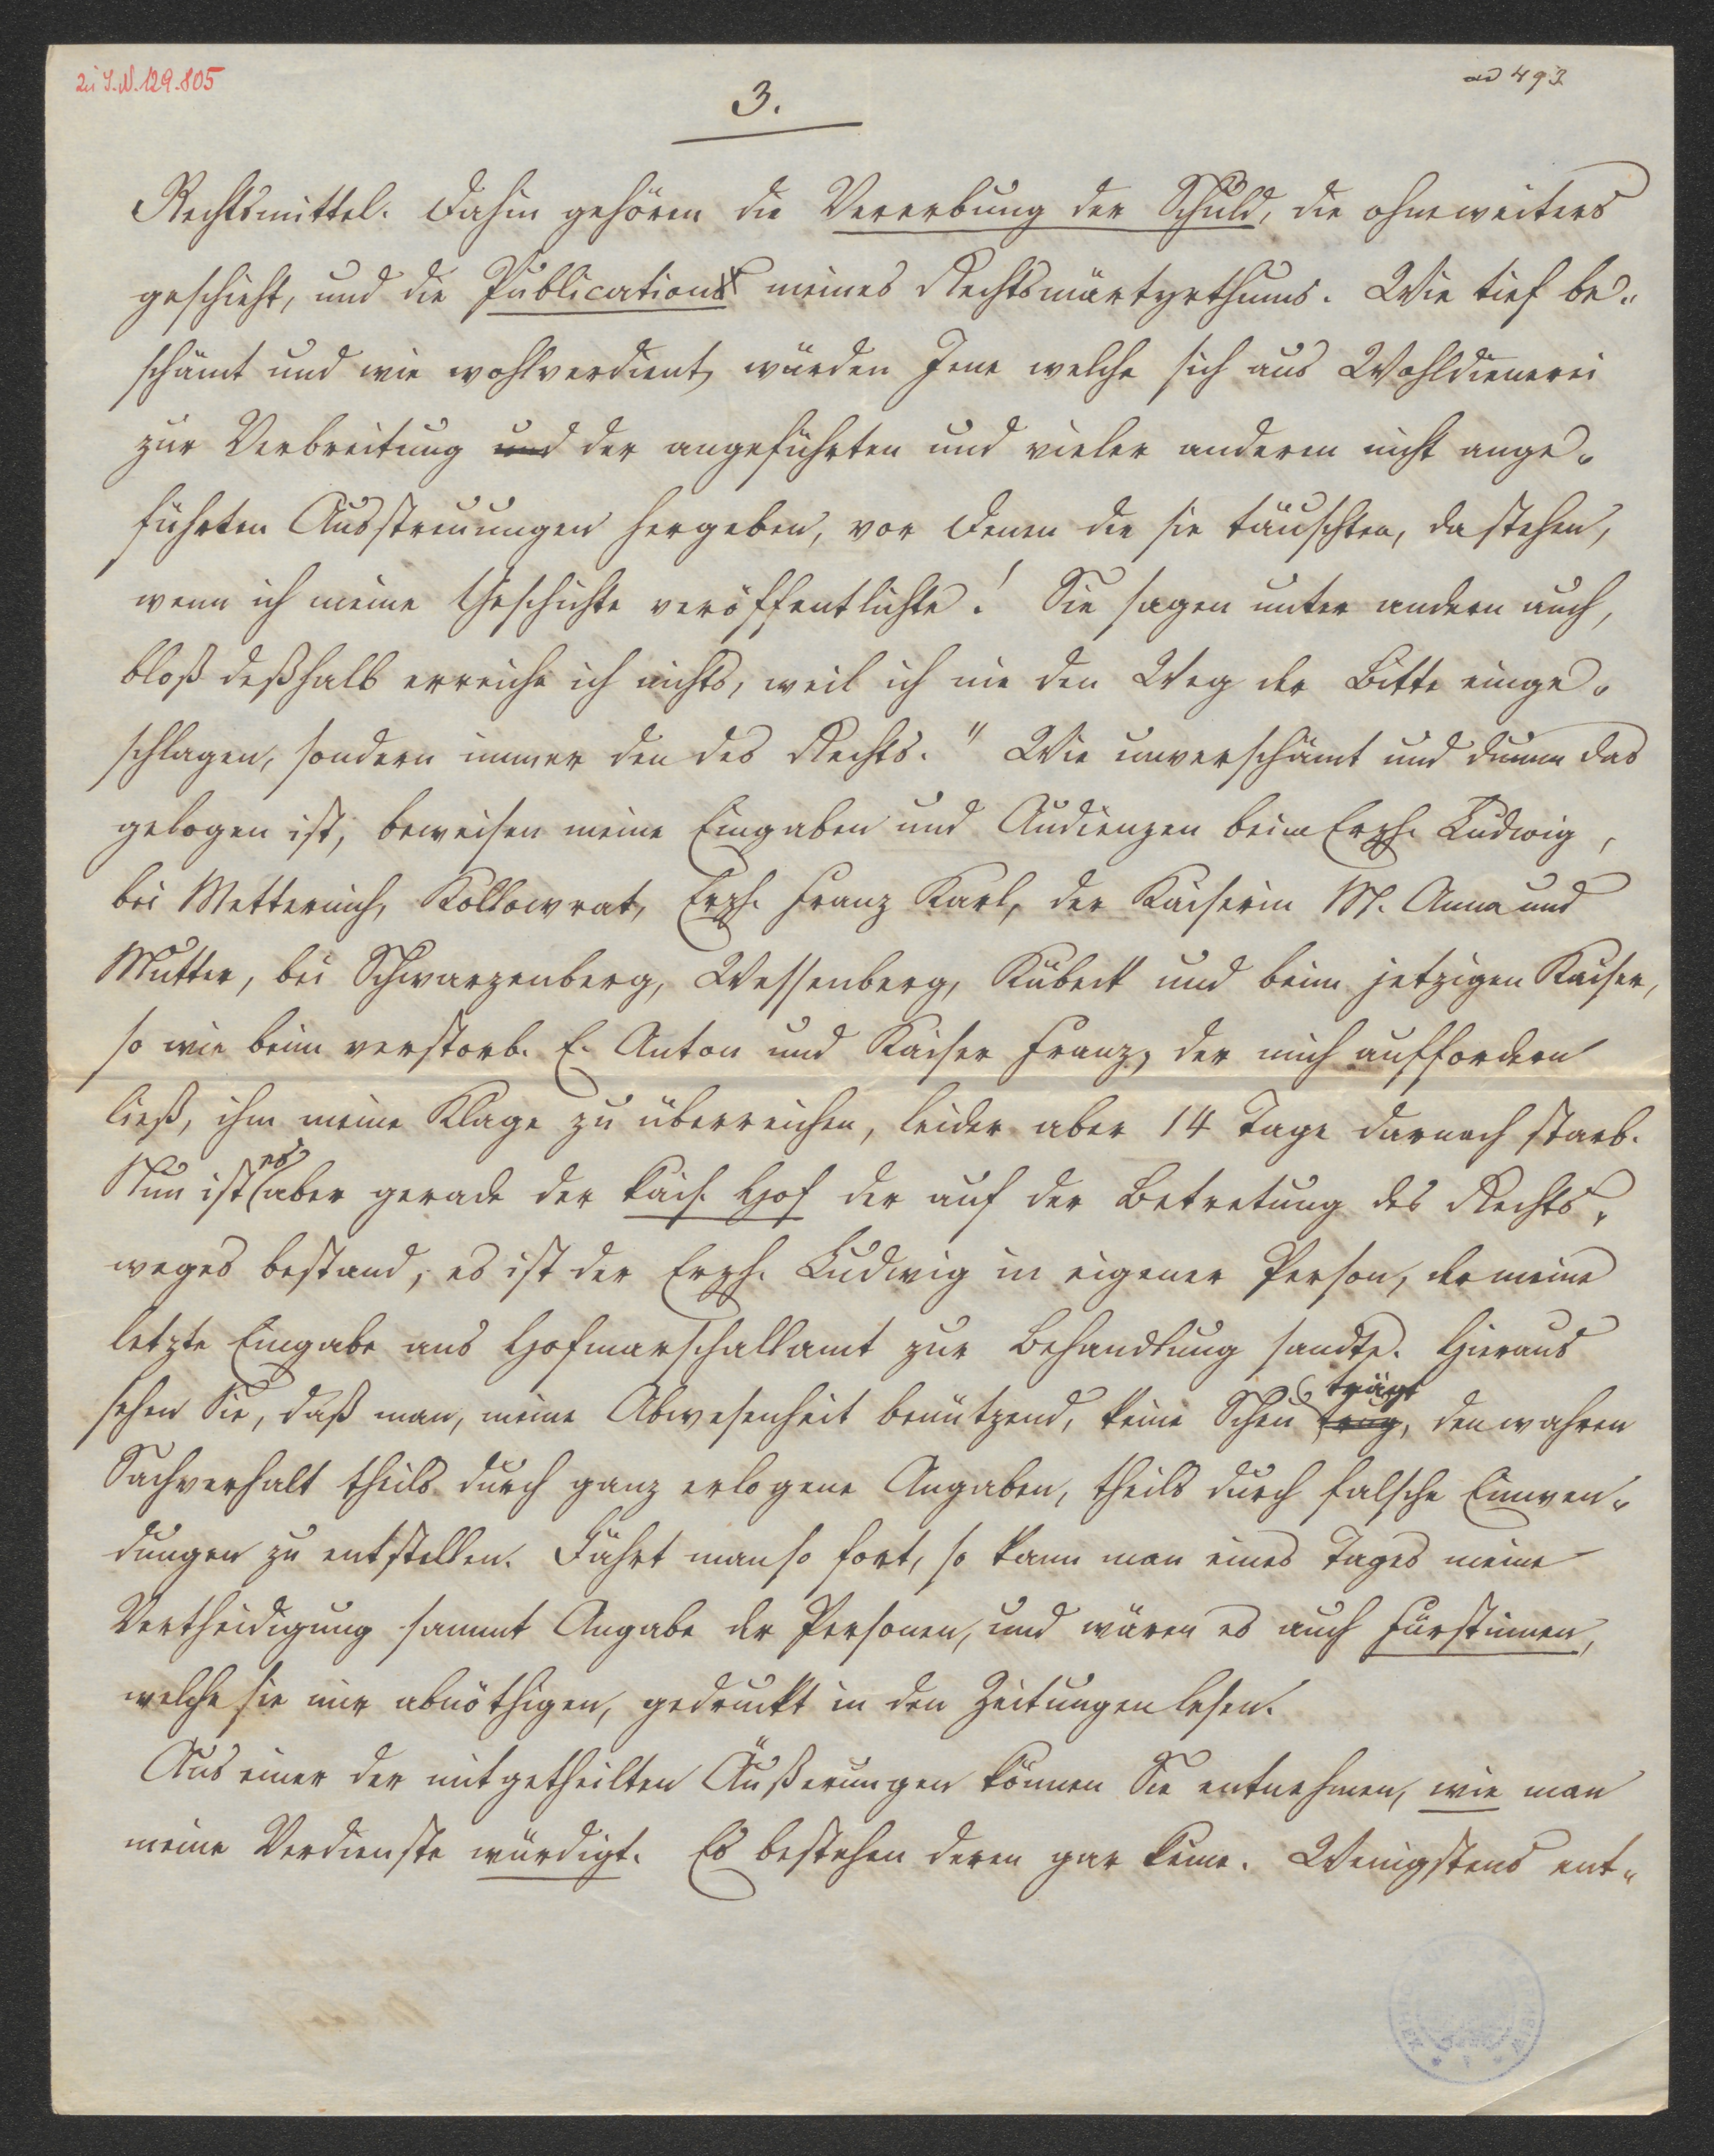 zu I.N. 129.805
ad 493
3.
Rechtsmittel. Dahin gehören die Vererbung der Schuld, die ohneweiters
geschieht, und die Publication meines Rechtsmärtyrthums. Wie tief be-
schämt und wie wohlverdient, würden Jene welche sich aus Wohldienerei
zur Verbreitung und der angeführten und vieler anderen nicht ange-
führten Ausstreuungen hergeben, vor denen die sie täuschten, da stehen,
wenn ich meine Geschichte veröffentlichte! Sie sagen unter andern auch,
bloß deßhalb erreiche ich nichts, weil ich nie den Weg der Bitte einge-
schlagen, sondern immer den des Rechts." Wie unverschämt und dumm das
gelogen ist, beweisen meine Eingaben und Audienzen beim Erzh. Ludwig,
bei Metternich, Kollowrat, Erzh. Franz Karl, der Kaiserin M. Anna und
Mutter, bei Schwarzenberg, Wessenberg, Kübeck und beim jetzigen Kaiser,
so wie beim verstorb. E. Anton und Kaiser Franz, der mich auffordern
ließ, ihm meine Klage zu überreichen, leider aber 14 Tage darnach starb.
Nun ist es aber gerade der kais. Hof der auf der Betretung des Rechts-
weges bestand, es ist der Erzh. Ludwig in eigener Person, der meine
letzte Eingabe ans Hofmarschallamt zur Behandlung sandte. Hieraus
sehen Sie, daß man, meine Abwesenheit benützend, keine Scheu trug, trägt den wahren
Sachverhalt theils durch ganz erlogene Angaben, theils durch falsche Einwen-
dungen zu entstellen. Fährt man so fort, so kann man eines Tages meine
Vertheidigung sammt Angabe der Personen, und wären es auch Fürstinnen,
welche sie mir abnöthigen, gedruckt in den Zeitungen lesen.
Aus einer der mitgetheilten Äußerungen können Sie entnehmen, wie man
meine Verdienste würdigt. Es bestehen deren gar keine. Wenigstens ent-